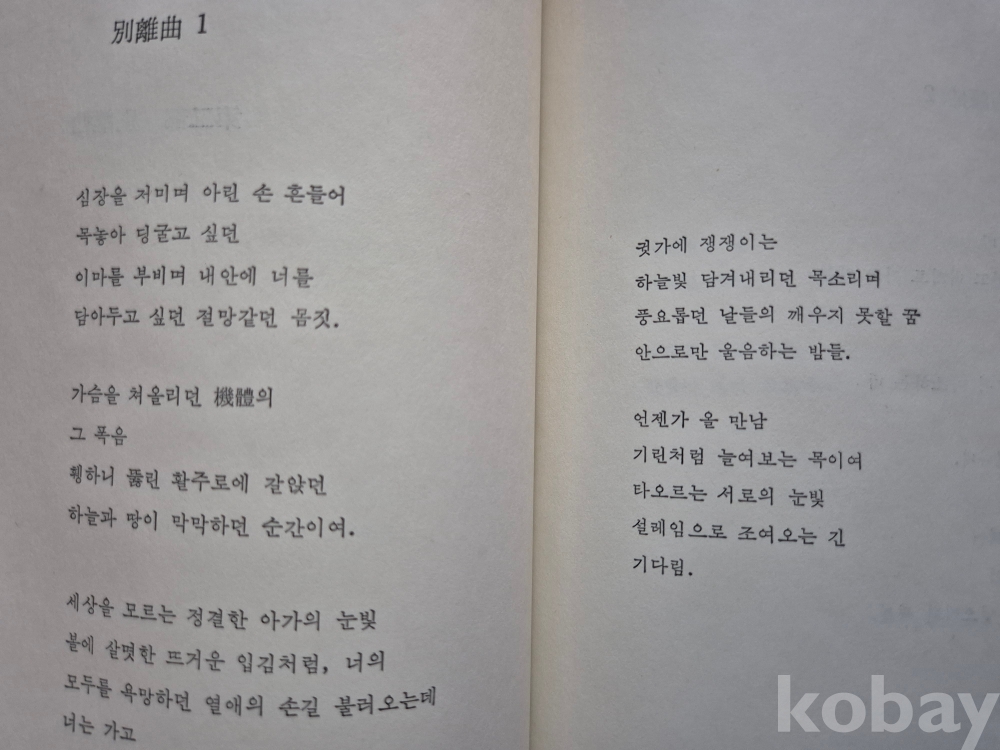 別離曲 1
심장을 저미며 아린 손 흔들어
목놓아 딩굴고 싶던
이마를 부비며 내안에 너를
담아두고 싶던 절망같던 몸짓.
가슴을 쳐올리던 機體의
그 폭음
휑하니 뚫린 활주로에 갈앉던
하늘과 땅이 막막하던 순간이여.
세상을 모르는 정결한 아가의 눈빛
불에 살몃한 뜨거운 입김처럼, 너의
모두를 욕망하던 열애의 손길 불러오는데
너는 가고
귓가에 쟁쟁이는
하늘빛 담겨내리던 목소리며
풍요롭던 날들의 깨우지 못할 꿈
안으로만 울음하는 밤들.
언젠가 올 만남
기린처럼 늘여보는 목이여
타오르는 서로의 눈빛
설레임으로 조여오는 긴
기다림.
kobay